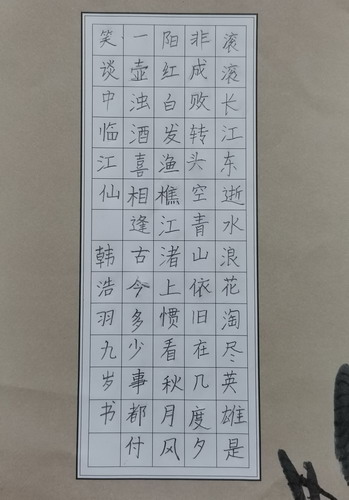 滚滚长江东逝水浪花淘尽英雄是
非成败转头空青山依旧在几度夕
阳红白发渔樵江渚上惯看秋月风
一壶浊酒喜相逢古今多少事都付
笑谈中临江仙 韩浩羽九岁书